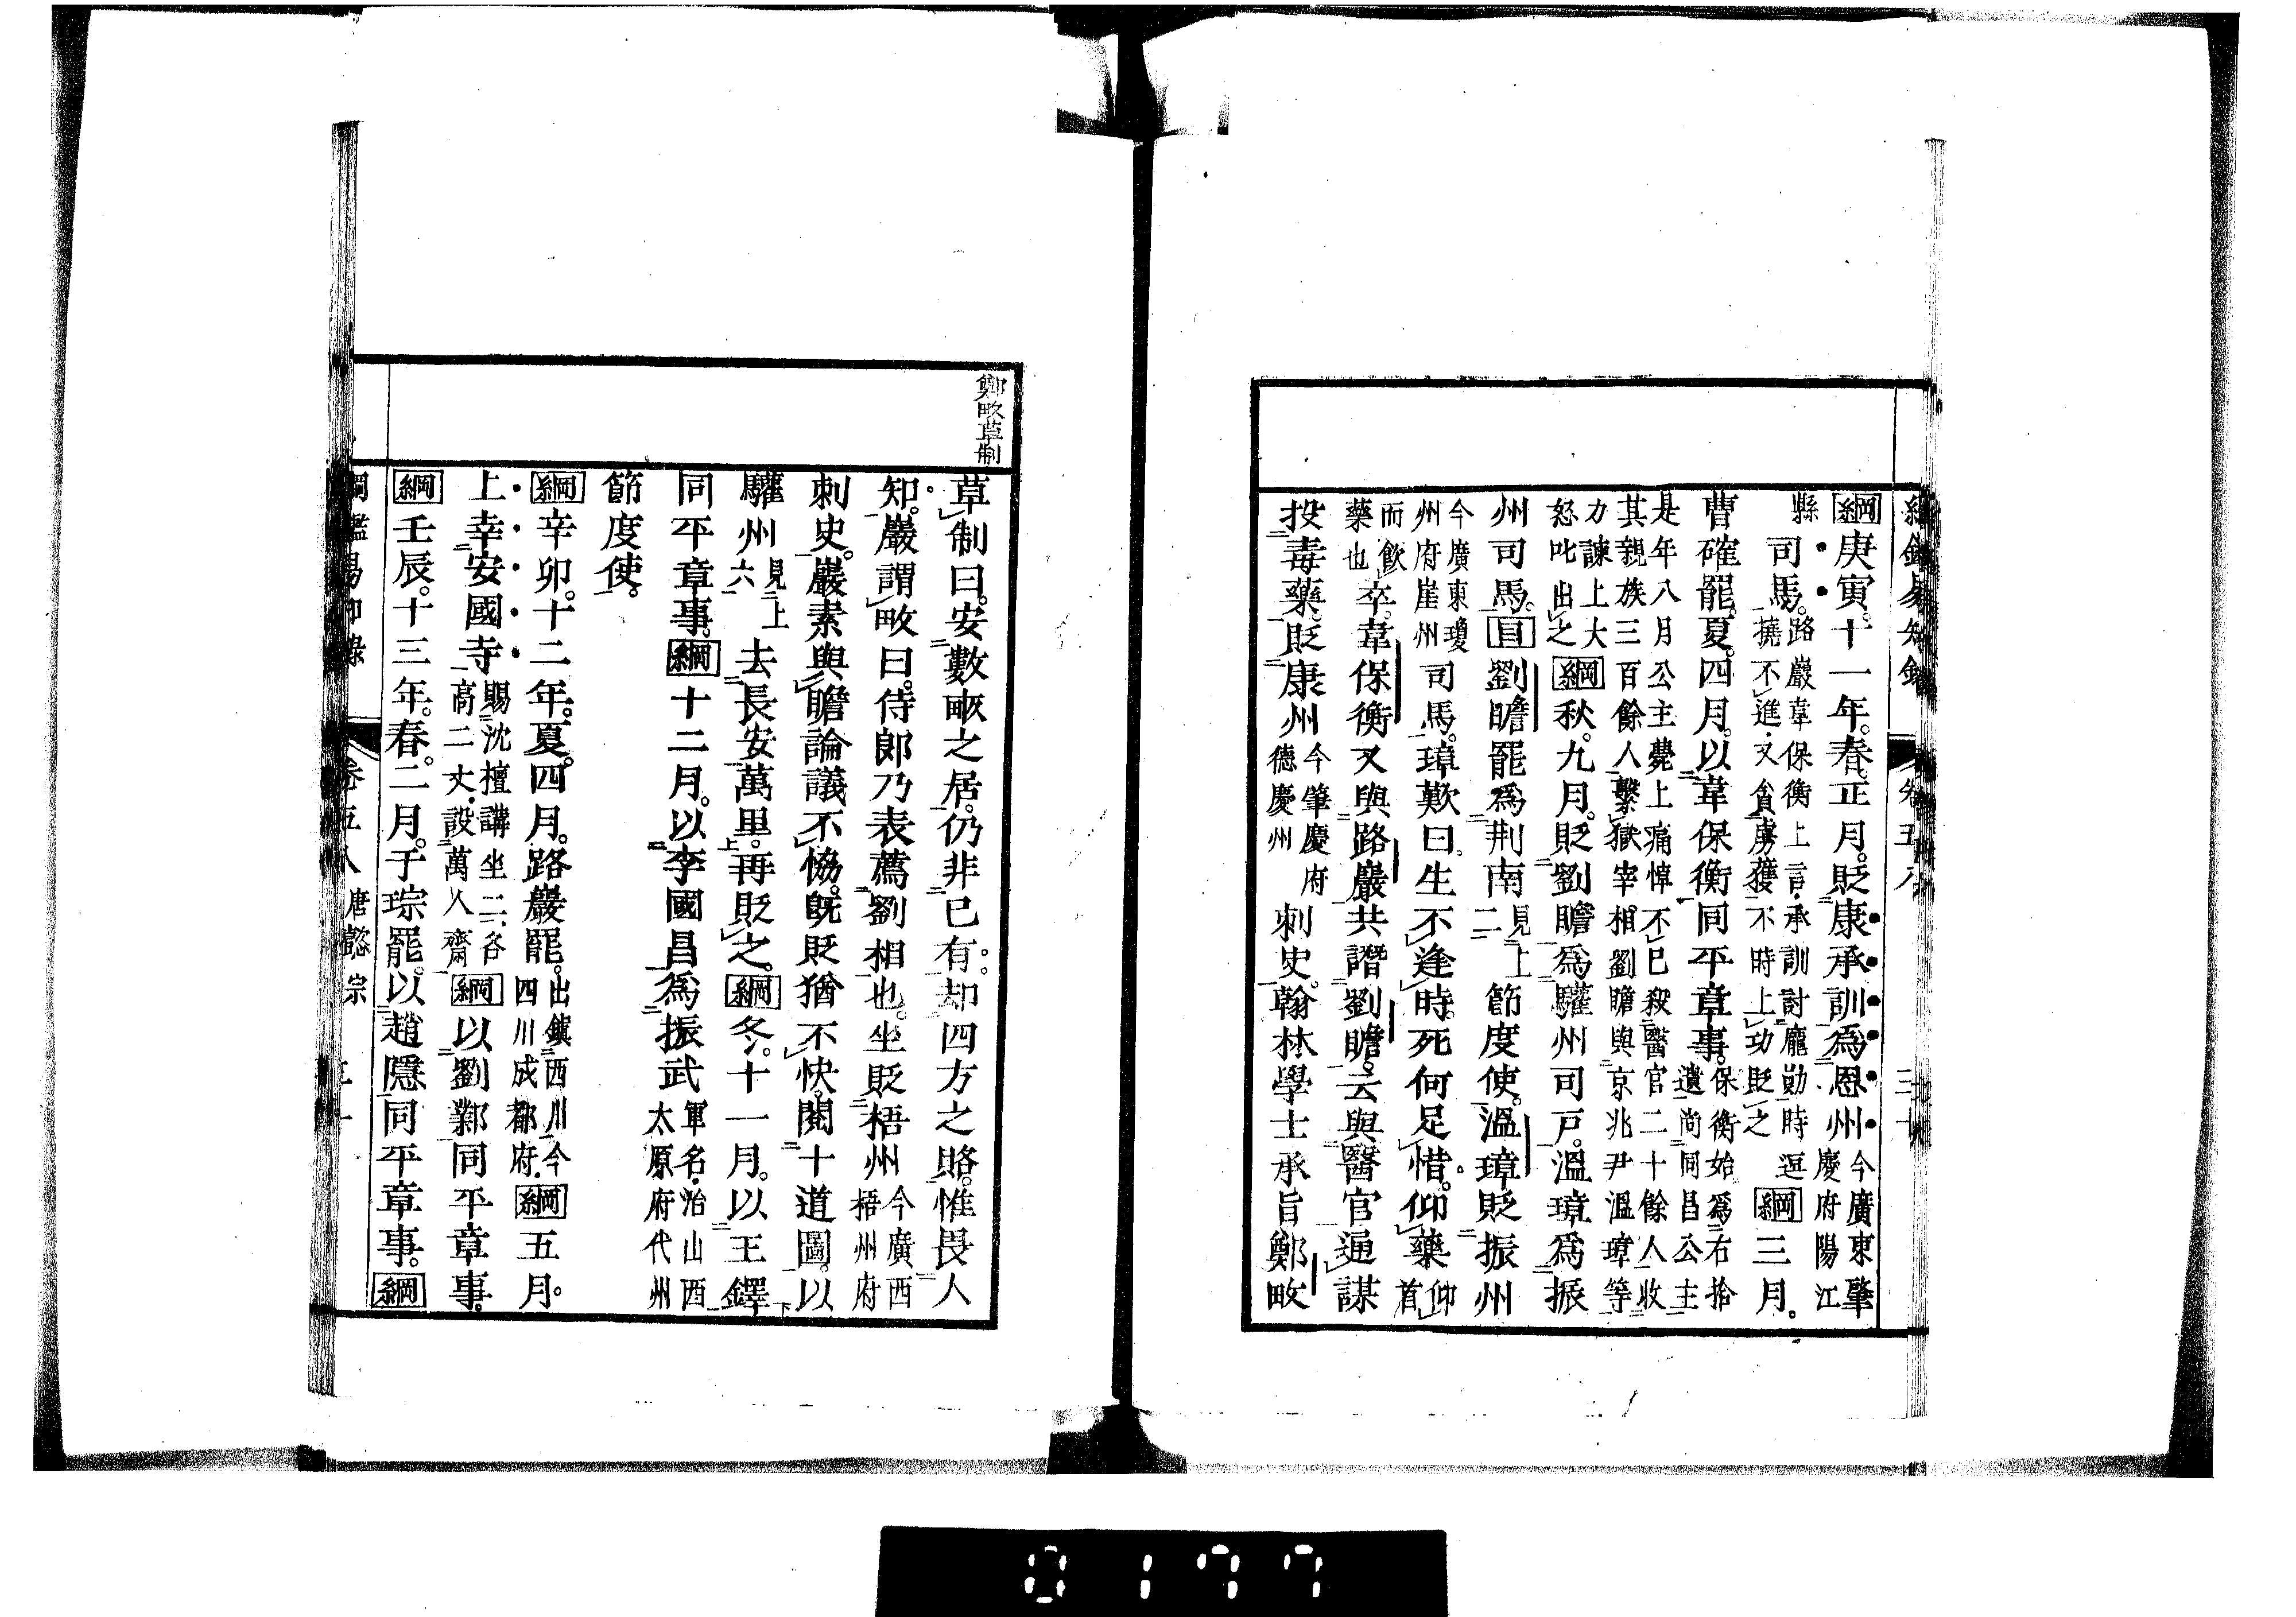 綱鑑易知錄 卷五八 三十
綱庚寅。十一年。春。正月。貶康承訓爲恩州今廣東肇慶府陽江
縣司馬。路巖韋保衡上言。承訓討龐勛時逗撓不進。又貪虜獲。不時上功。貶之綱三月。
曹確罷。夏。四月。以韋保衡同平章事。保衡始爲右拾遺尚同昌公主
是年八月公主薨上痛悼不已殺醫官二十餘人收其親族三百餘人繫獄宰相劉瞻與京兆尹溫璋等
力諫上大怒叱出之綱秋。九月。貶劉瞻爲驩州司戶。溫璋爲振
州司馬。目劉瞻罷爲荆南見上二節度使。溫璋貶振州
今廣東瓊州府崖州司馬。璋歎曰。生不逢時。死何足惜。仰藥仰首
而飲藥也卒。韋保衡又與路巖共譖劉瞻。云與醫官通謀
投毒藥。貶康州今肇慶府德慶州刺史。翰林學士承旨鄭畋
鄭畋草制
草制曰。安數畝之居。仍非已有。却四方之賂。惟畏人
知。巖謂畋曰。侍郎乃表薦劉相也。坐貶梧州今廣西梧州府
刺史。巖素與瞻論議不恊。旣貶猶不快。閱十道圖。以
驩州見上六去長安萬里。再貶之。綱冬。十一月。以王鐸
同平章事。綱十二月。以李國昌爲振武軍名。治山西太原府代州
節度使。
綱辛卯。十二年。夏。四月。路巖罷。出鎮西川今四川成都府。綱五月。
上幸安國寺賜沈檀講坐二。各高二丈。設萬人齋綱以劉鄴同平章事。
綱壬辰。十三年。春。二月。于琮罷。以趙隱同平章事。綱
綱鑑易知錄 卷五八 唐懿宗
0177